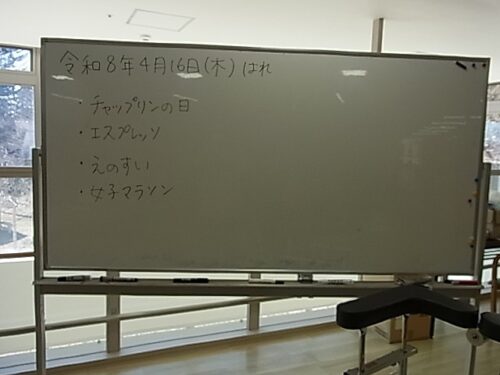 令和8年4月16日(木) はれ
・チャップリンの日
・エスプレッソ
・えのすい
・女子マラソン